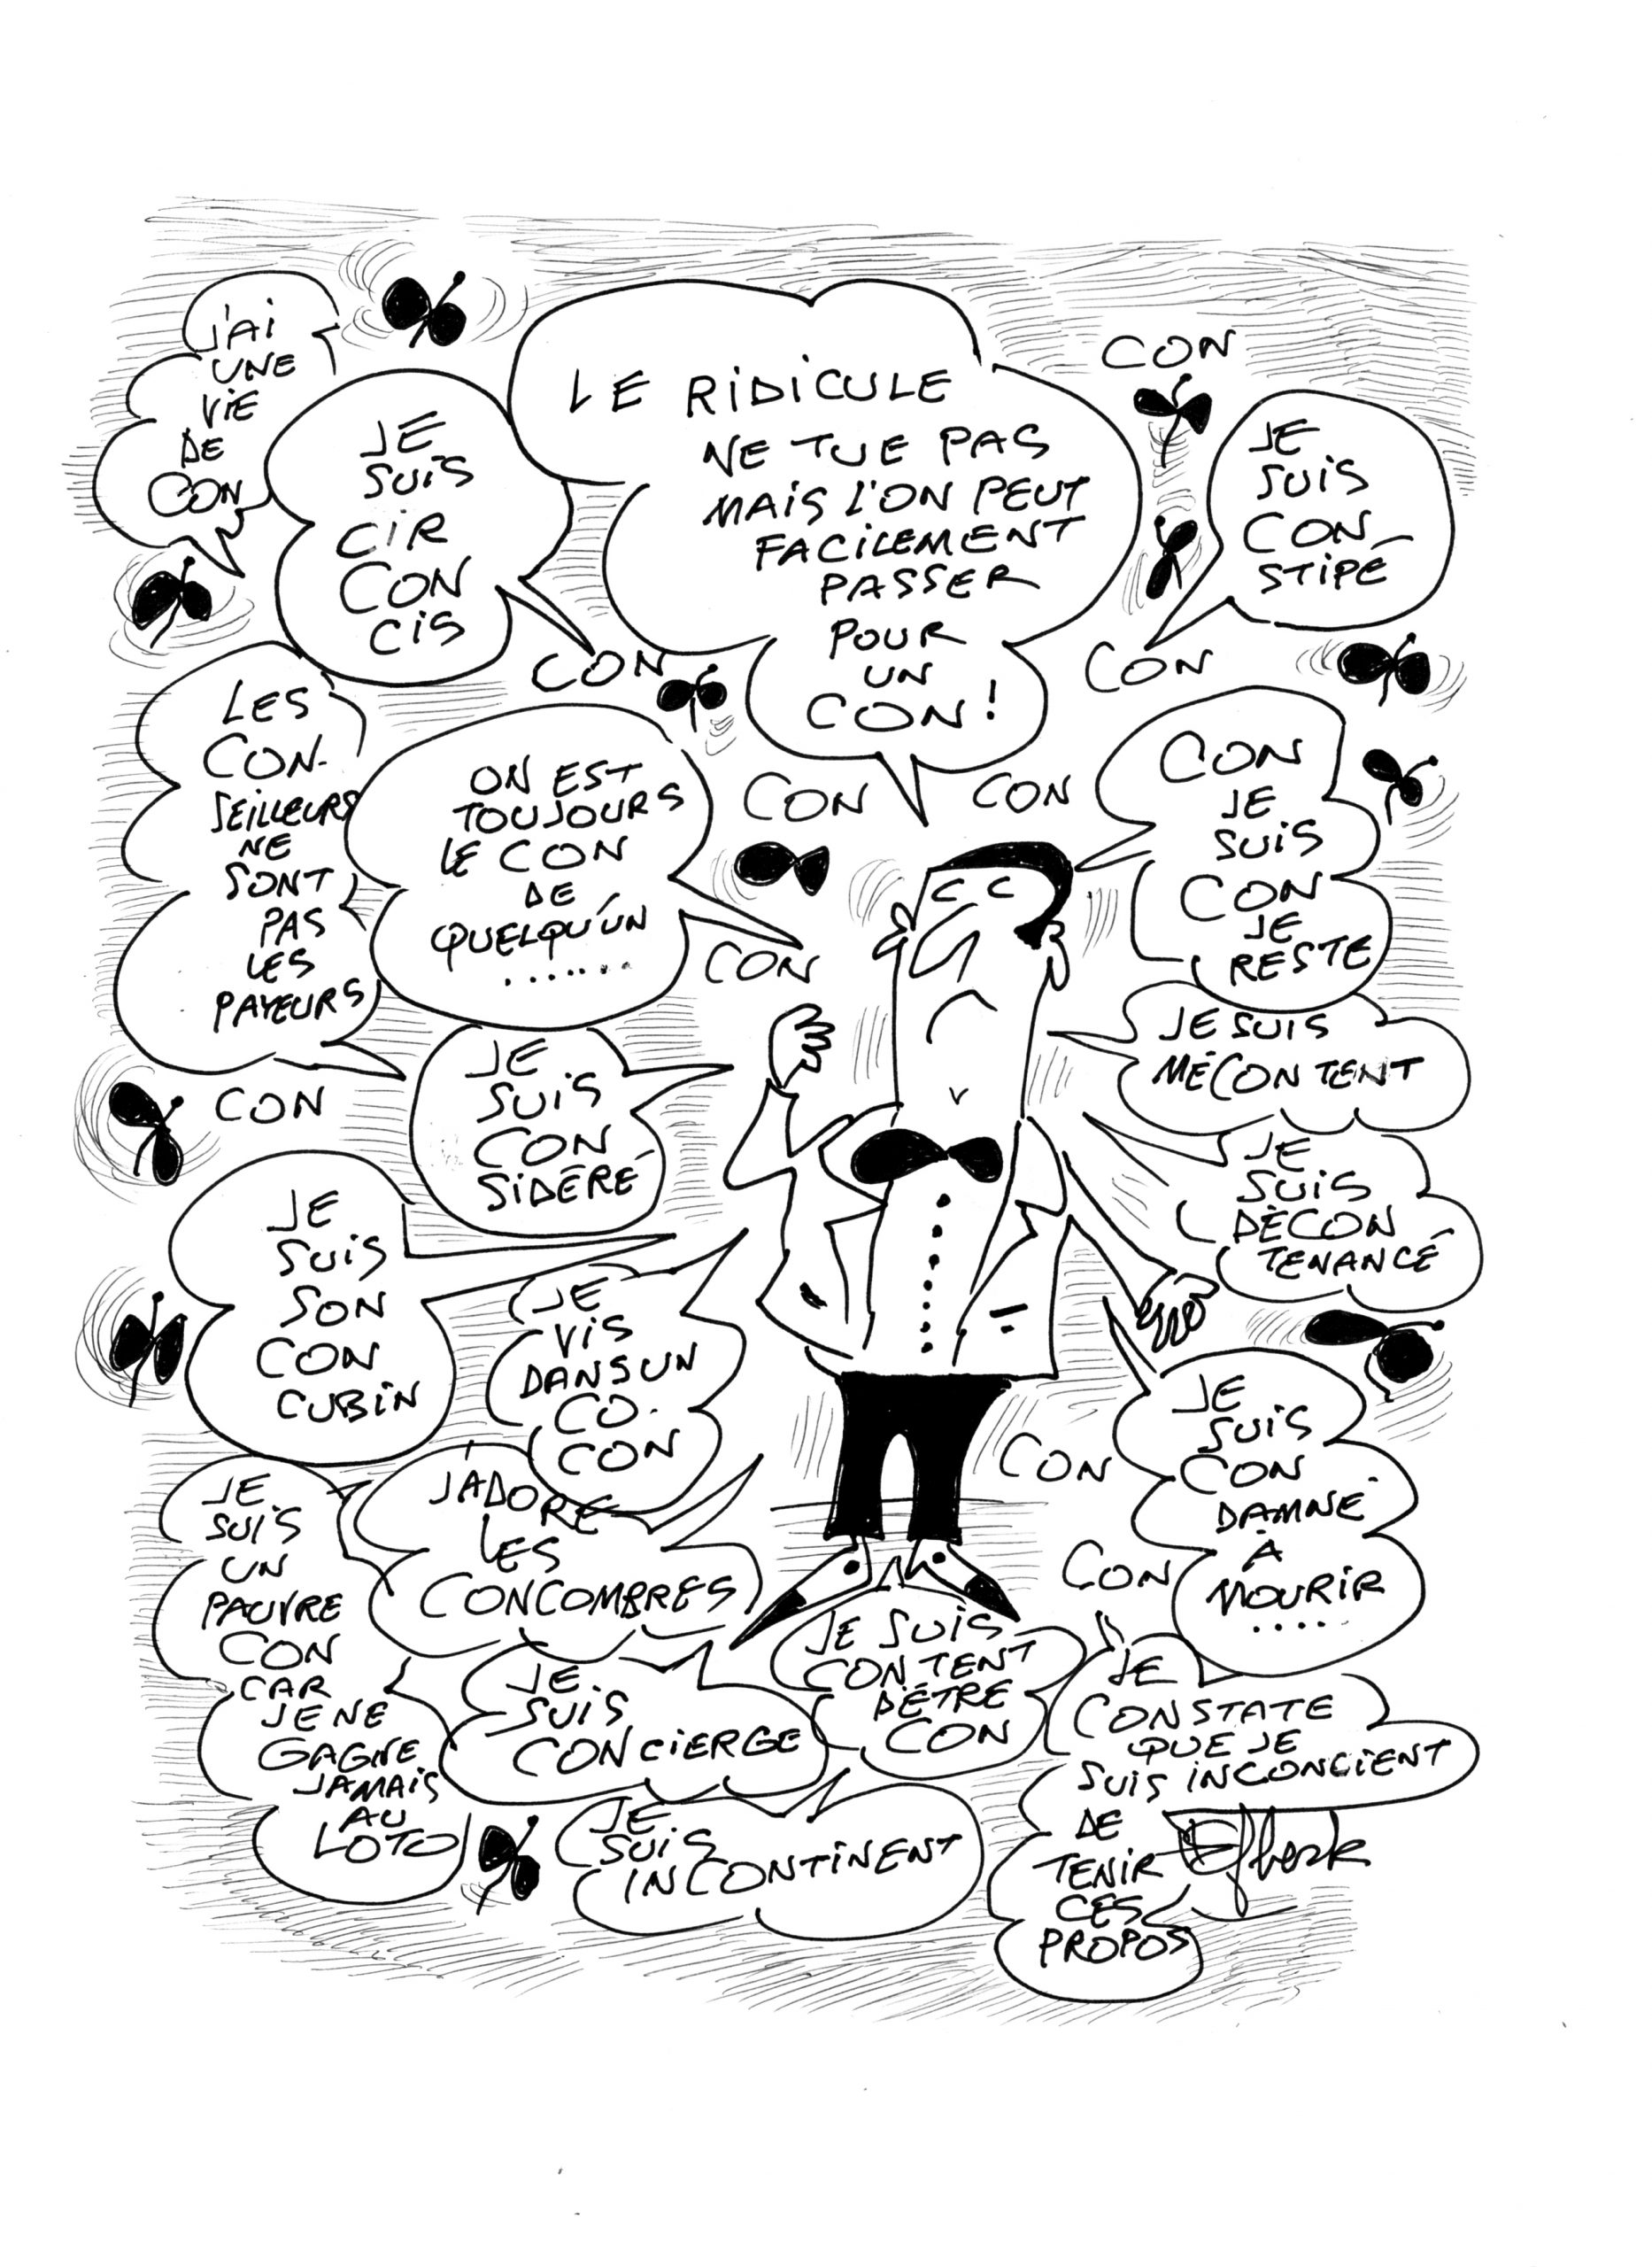 J'AI
UNE
VIE
DE
CON
JE
SUIS
CIR
CON
CIS
LE RIDICULE
NE TUE PAS
MAIS L'ON PEUT
FACILEMENT
PASSER
POUR
UN
CON!
CON
JE
SUIS
CON
STIPÉ
CON
CON
LES
CON-
SEILLEURS
NE
SONT
PAS
LES
PAYEURS
ON EST
TOUJOURS
LE CON
DE
QUELQU'UN
.......
CON
CON
CON
JE
SUIS
CON
JE
RESTE
CON
JE SUIS
MÉCONTENT
CON
JE
SUIS
CON
SIDÉRÉ
JE
SUIS
DÉCON
TENANCÉ
JE
SUIS
SON
CON
CUBIN
JE
VIS
DANS UN
CO.
CON
JE
SUIS
CON
DAMNÉ
À
MOURIR
....
CON
CON
JE
SUIS
UN
PAUVRE
CON
CAR
JE NE
GAGNE
JAMAIS
AU
LOTO
J'ADORE
LES
CONCOMBRES
JE
SUIS
CONCIERGE
JE SUIS
CONTENT
D'ÊTRE
CON
JE
CONSTATE
QUE JE
SUIS INCONCIENT
DE
TENIR
CES
PROPOS
JE
SUIS
INCONTINENT